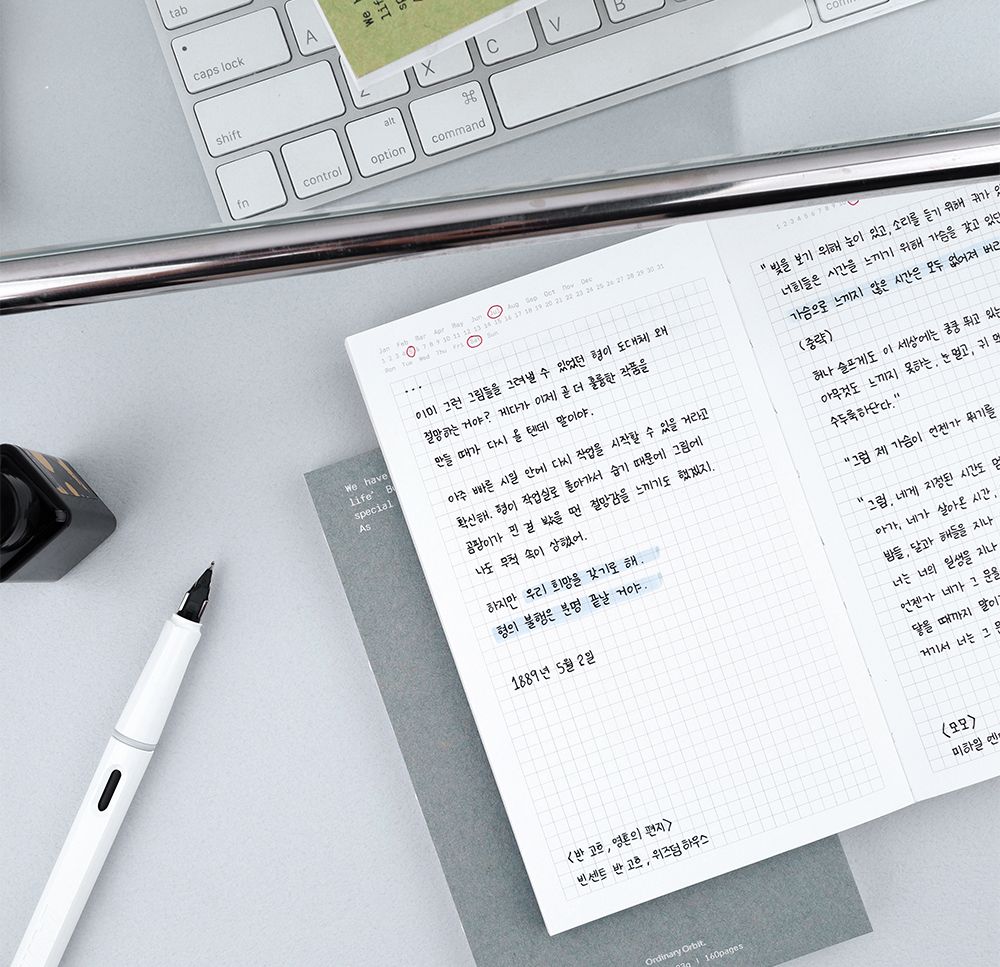 tab
caps lock
A
shift
Z
X
C
V
B
fn
control
alt
option
⌘
command
We
Jan Feb Mar Apr May Jun Jul Aug Sep Oct Nov Dec
1 2 3 4 5 6 7 8 9 10 11 12 13 14 15 16 17 18 19 20 21 22 23 24 25 26 27 28 29 30 31
Mon Tue Wed Thu Fri Sat Sun
...
이미 그런 그림들을 그려낼 수 있었던 형이 도대체 왜
절망하는 거야? 게다가 이제 곧 더 훌륭한 작품을
만들 때가 다시 올 텐데 말이야.
아주 빠른 시일 안에 다시 작업을 시작할 수 있을 거라고
확신해. 형이 작업실로 돌아가서 습기 때문에 그림에
곰팡이가 핀 걸 봤을 땐 절망감을 느끼기도 했겠지.
나도 무척 속이 상했어.
하지만 우리 희망을 갖기로 해.
형의 불행은 분명 끝날 거야.
1889년 5월 2일
<반 고흐, 영혼의 편지>
빈센트 반 고흐, 위즈덤하우스
1 2 3 4 5 6 7 8 9
"빛을 보기 위해 눈이 있고, 소리를 듣기 위해 귀가
너희들은 시간을 느끼기 위해 가슴을 갖고
가슴으로 느끼지 않은 시간은 모두 없어져
(중략)
허나 슬프게도 이 세상에는 쿵쿵 뛰고 있는
아무것도 느끼지 못하는, 눈 멀고, 귀
수두룩하단다."
"그럼 제 가슴이 언젠가 뛰기를
"그럼, 네게 지정된 시간도
아가, 네가 살아온 시간,
밤들, 달과 해들을 지나
너는 너의 일생을 지나
언젠가 네가 그 문을
닿을 때까지 말이
거기서 너는 그
<모모>
미하엘 엔
We have
life'
special
As
Ordinary Orbit.
160pages